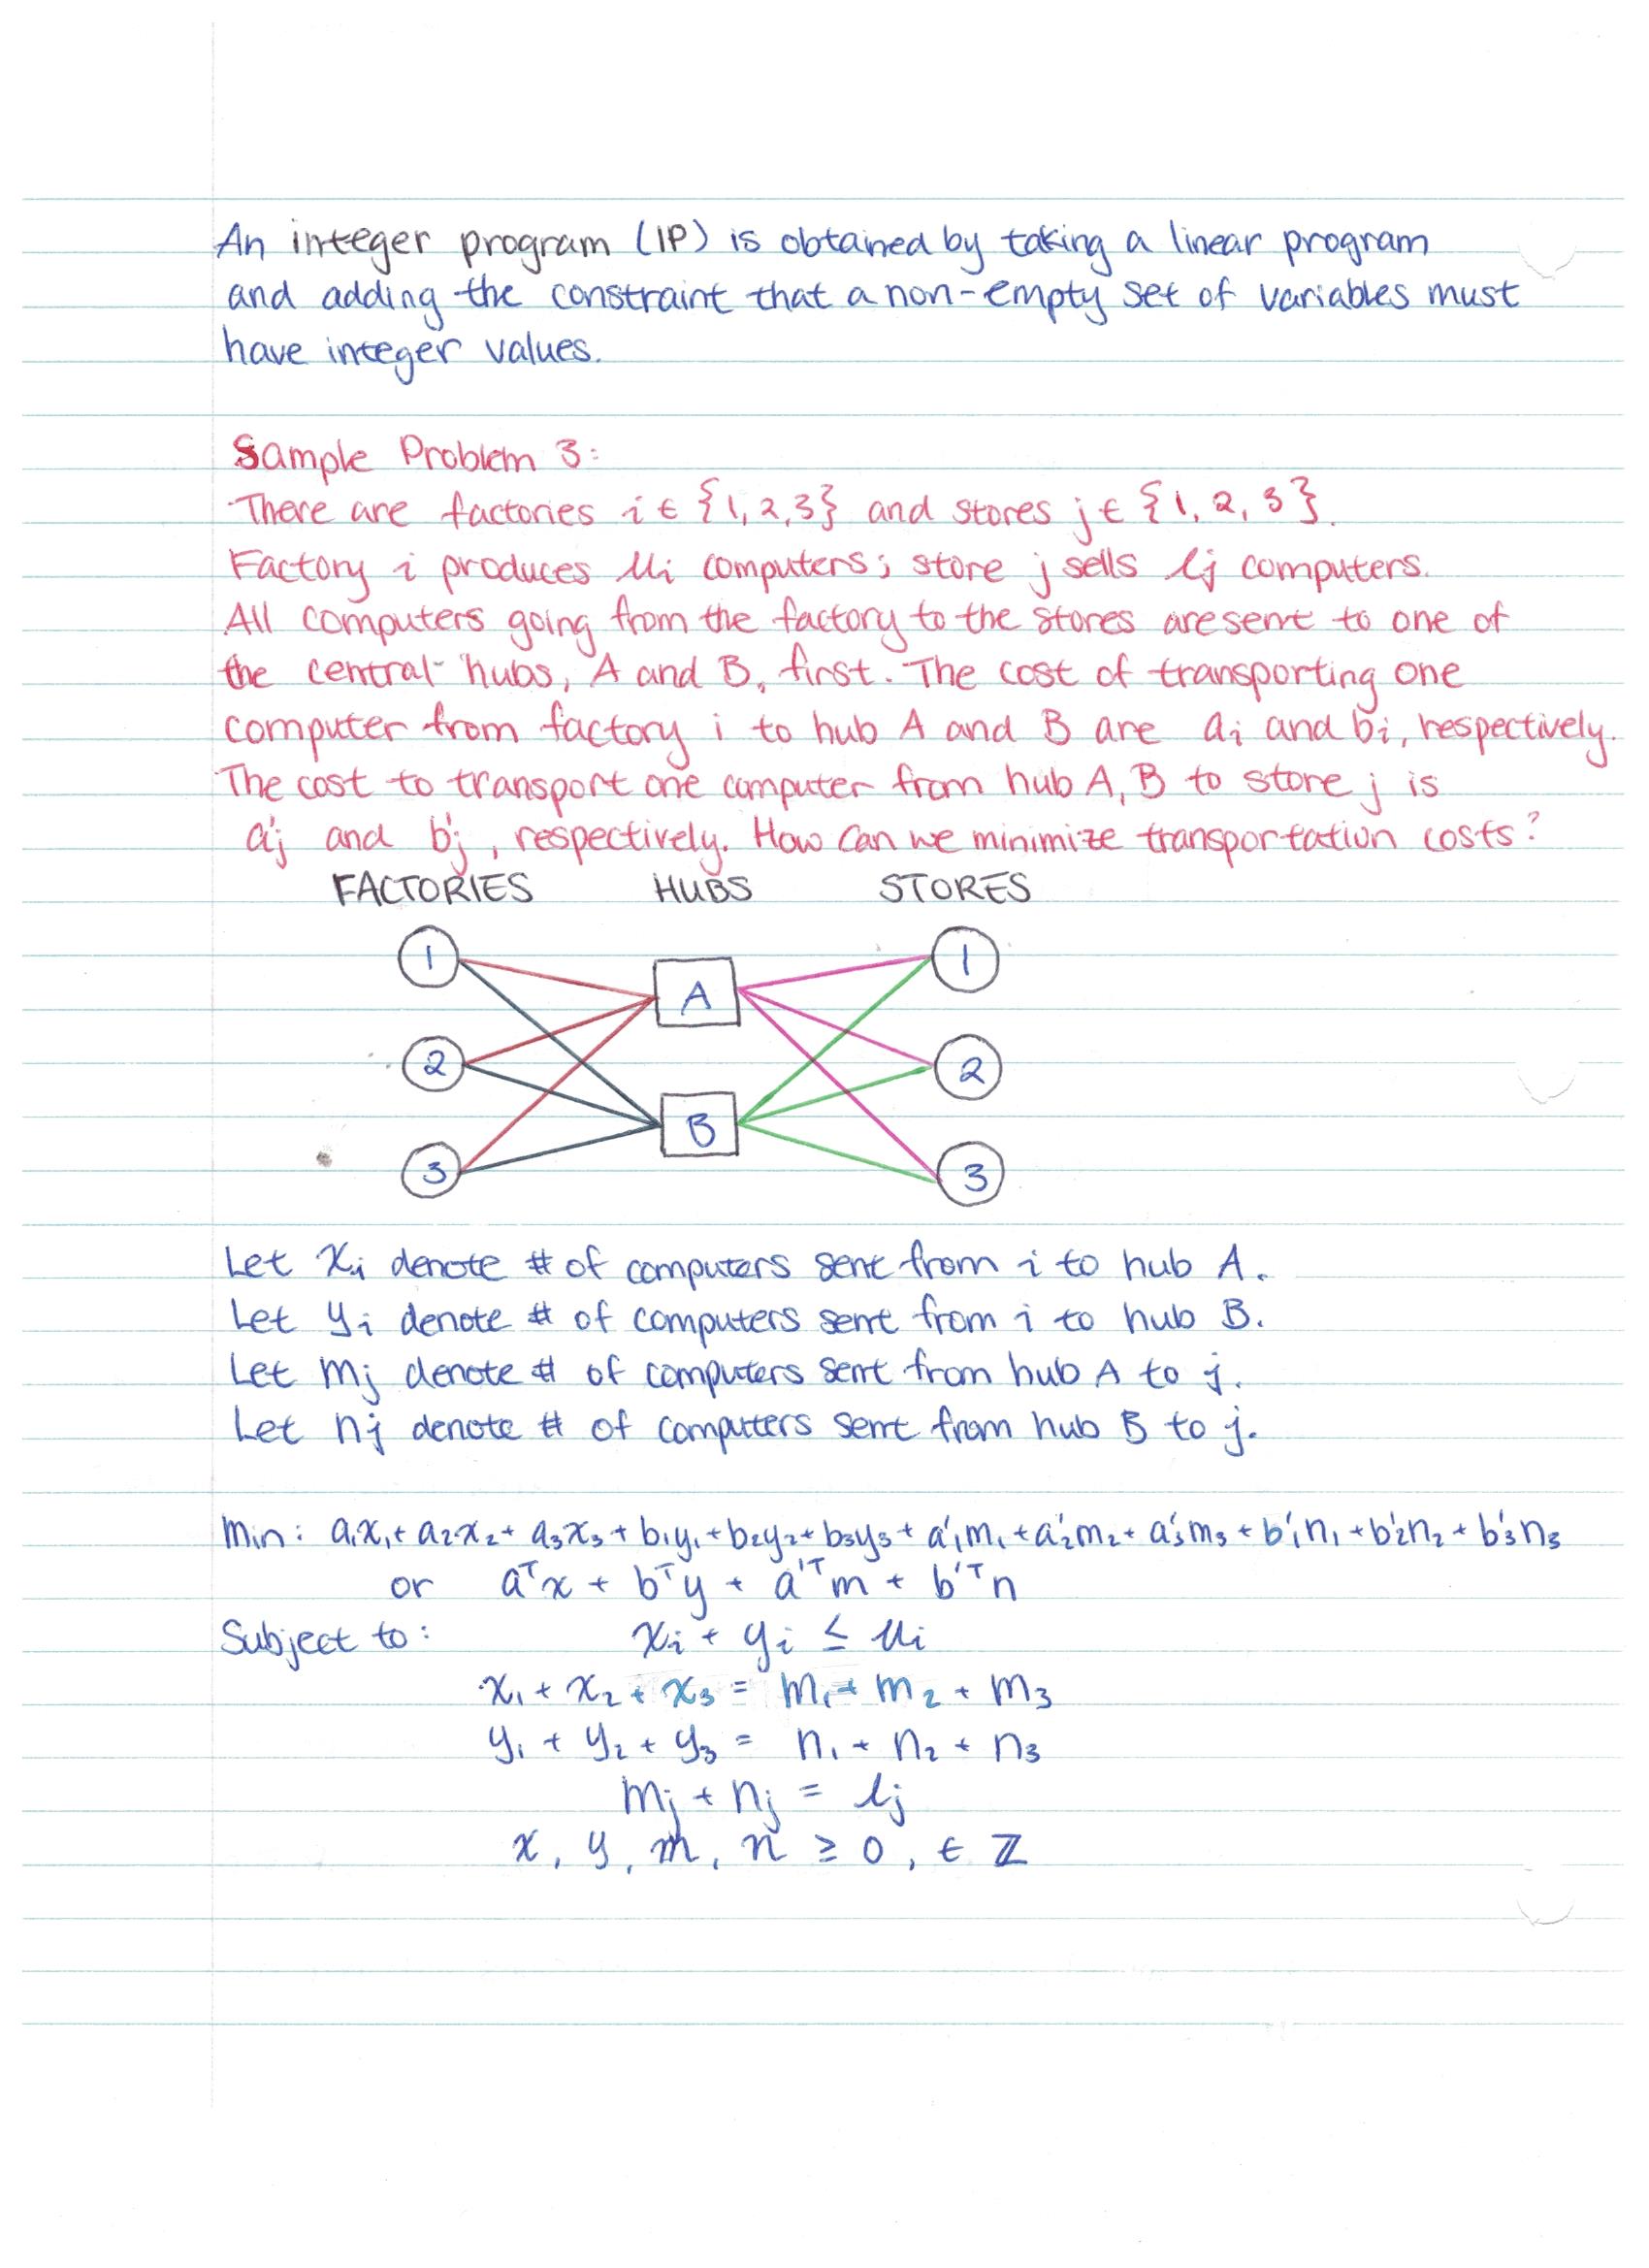 An integer program (IP) is obtained by taking a linear program
and adding the constraint that a non-empty set of variables must
have integer values.
Sample Problem 3:
There are factories i ∈ {1, 2, 3} and stores j ∈ {1, 2, 3}.
Factory i produces uᵢ computers; store j sells ℓⱼ computers.
All computers going from the factory to the stores are sent to one of
the central hubs, A and B, first. The cost of transporting one
computer from factory i to hub A and B are aᵢ and bᵢ, respectively.
The cost to transport one computer from hub A, B to store j is
a'ⱼ and b'ⱼ, respectively. How can we minimize transportation costs?
FACTORIES HUBS STORES
1 A 1
2 2
B
3 3
Let xᵢ denote # of computers sent from i to hub A.
Let yᵢ denote # of computers sent from i to hub B.
Let mⱼ denote # of computers sent from hub A to j.
Let nⱼ denote # of computers sent from hub B to j.
Min: a₁x₁ + a₂x₂ + a₃x₃ + b₁y₁ + b₂y₂ + b₃y₃ + a'₁m₁ + a'₂m₂ + a'₃m₃ + b'₁n₁ + b'₂n₂ + b'₃n₃
or aᵀx + bᵀy + a'ᵀm + b'ᵀn
Subject to: xᵢ + yᵢ ≤ uᵢ
x₁ + x₂ + x₃ = m₁ + m₂ + m₃
y₁ + y₂ + y₃ = n₁ + n₂ + n₃
mⱼ + nⱼ = ℓⱼ
x, y, m, n ≥ 0, ∈ ℤ